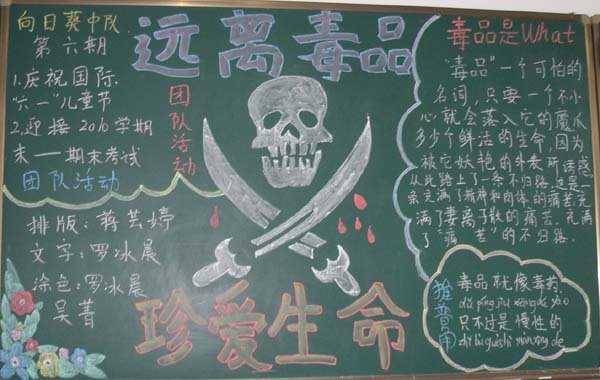 向日葵中队
第六期
1.庆祝国际
"六一"儿童节
2.迎接2010学期
末——期末考试
团队活动
排版:蒋芸婷
文字:罗冰晨
涂色:罗冰晨
吴菁
远离毒品
团队活动
珍爱生命
毒品是What
"毒品"一个可怕的
名词,只要一个不小
心就会落入它的魔爪
多少个鲜活的生命,因为
被它妖艳的外表所诱惑。
从此踏上了一条不归路,这是一
条充满了精神和肉体的痛苦充
满了妻离子散的痛苦。充满
了"痛苦"的不归路。
推普角
毒品就像毒药
只不过是慢性的